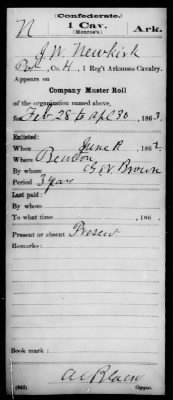 (Confederate.)
N 1 Cav. Ark.
(Monroe's)
J. W. Newkirk
Co. H, 1 Reg't Arkansas Cavalry.
Appears on
Company Muster Roll
of the organization named above,
Feb 28 to Apl 30, 1863.
Enlisted:
When June 18, 1862.
Where Benton
By whom G. W. Brown
Period 3 years
Last paid:
By whom
To what time , 186 .
Present or absent Present
Remarks:
Book mark:
(642) Copyist.